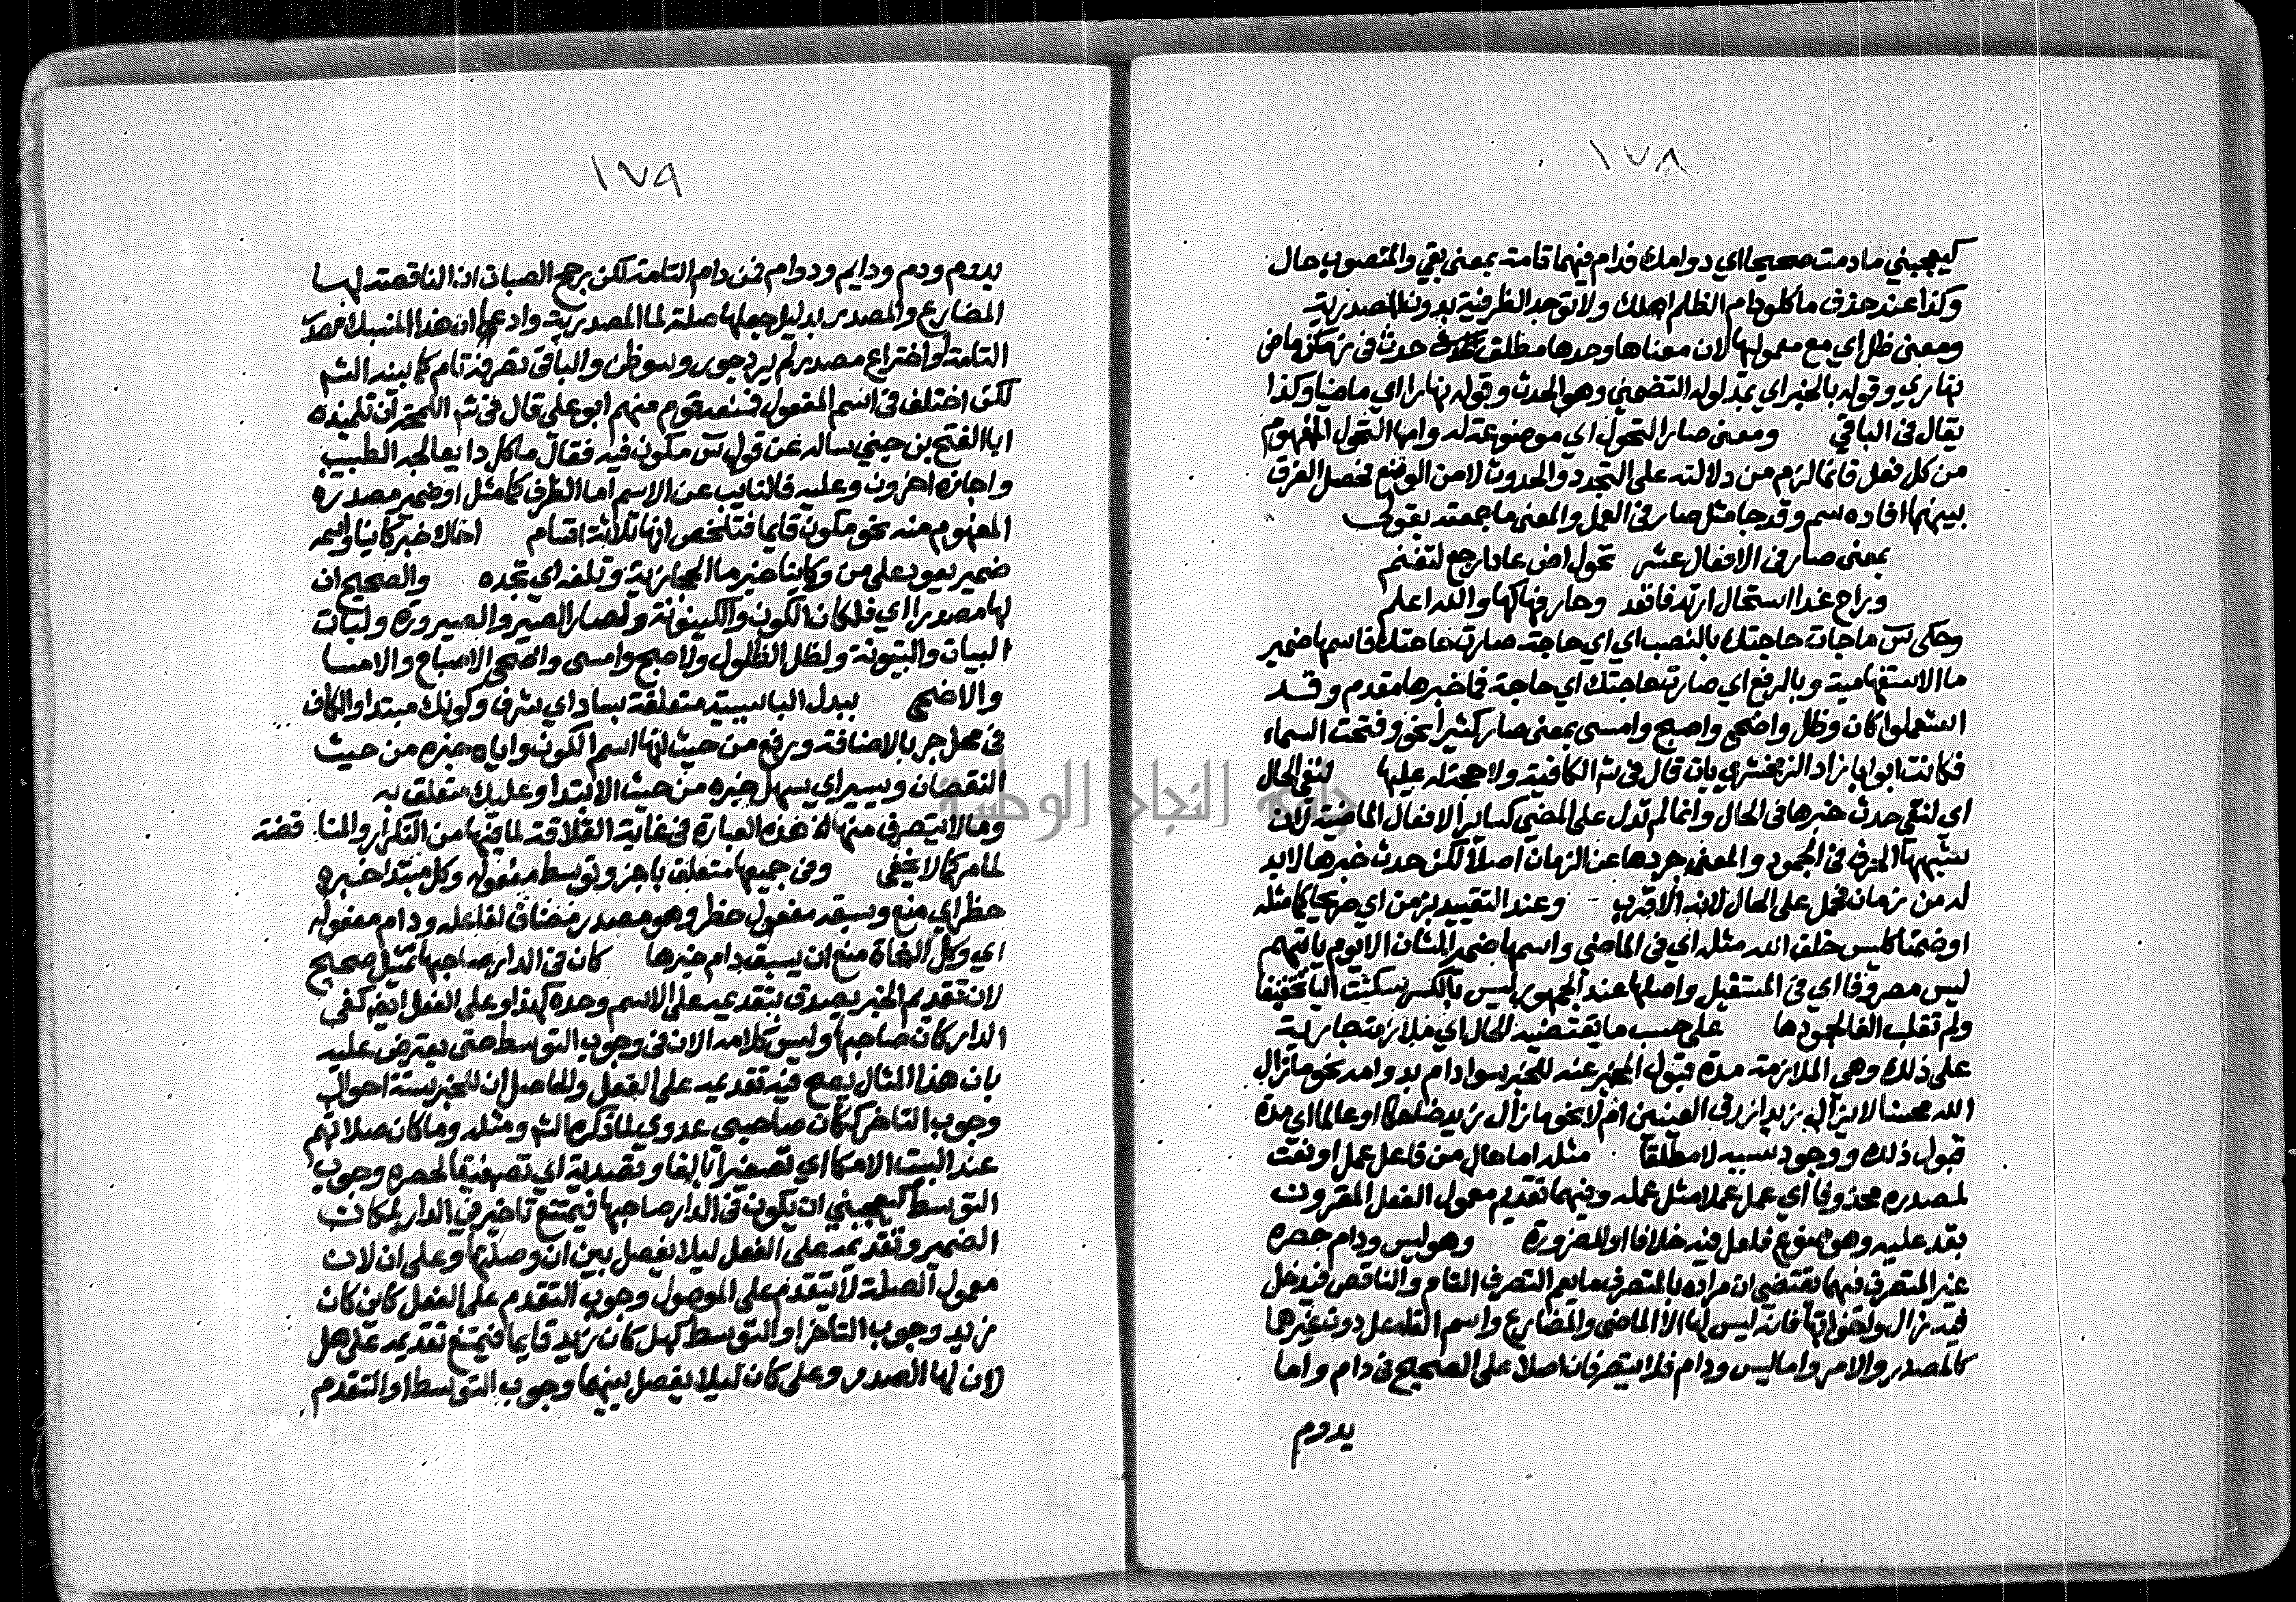 ١٧٨
كيعجبني ما دمت صحيحا اي دوامك فدام فيهما تامة بمعنى بقي والمنصوب حال
وكذا عند حذف ما كلو دام الظلم اهلك ولا توجد الظرفية بدون المصدرية
ومعنى ظل اي مع معموليها لان معناها وحدها مطلق حدث في زمن ماض
نهاري وقوله بالخبر اي بمدلوله التضمني وهو الحدث وقوله نهارا اي ماضيا وكذا
يقال في الباقي ومعنى صار التحول اي موضوعة له واما التحول المفهوم
من كل فعل فانما لزم من دلالته على التجدد والحدوث لا من الوضع فحصل الفرق
بينهما افاده سم وقد جا مثل صار في العمل والمعنى ما جمعته بقولي
بمعنى صار في الافعال عشر تحول اض عاد ارجع لتغنم
وراح غدا استحال ارتد فاقعد وحار فهاكها والله اعلم
وحكى س ما جات حاجتك بالنصب اي اي حاجة صارت حاجتك فاسمها ضمير
ما الاستفهامية وبالرفع اي صارت حاجتك اي حاجة فخبرها مقدم وقد
استعملوا كان وظل واضحى واصبح وامسى بمعنى صار كثيرا نحو وفتحت السماء
فكانت ابوابا زاد الزمخشري بات قال في ش الكافية ولا حجة له عليها لنفي الحال
اي لنفي حدث خبرها في الحال وانما لم تدل على المضي كسائر الافعال الماضية لان
شبهها الحرف في الجمود والمعنى جردها عن الزمان اصلا لكن حدث خبرها لا بد
له من زمان فحمل على الحال لانه الاقرب وعند التقييد بزمن اي صريحا كما مثله
او ضمنا كليس خلق الله مثله اي في الماضي واسمها ضمير الشان الا يوم ياتيهم
ليس مصروفا اي في المستقبل واصلها عند الجمهور ليس بالكسر سكنت اليا تخفيفا
ولم تقلب الفا لجمودها على حسب ما يقتضيه الحال اي ملازمة جارية
على ذلك وهي الملازمة مدة قبول المخبر عنه للخبر سوا دام بدوامه نحو ما زال
الله محسنا لا يزال زيد ازرق العينين ام لا نحو ما زال زيد ضاحكا او عالما اي مدة
قبول ذلك ووجود سببه لا مطلقا مثله اما حال من فاعل عمل او نعت
لمصدره محذوفا اي عمل عملا مثل عمله وفيهما تقديم معمول الفعل المقرون
بقد عليه وهو ممنوع فلعل فيه خلافا او للضرورة وهو ليس ودام حصره
غير المتصرف فيهما يقتضي ان مراده بالمتصرف ما يعم التصرف التام والناقص فيدخل
فيه زال واخواتها فانه ليس لها الا الماضي والمضارع واسم الفاعل دون غيرها
كالمصدر والامر واما ليس ودام فلا يتصرفان اصلا على الصحيح في دام واما
يدوم
١٧٩
يدوم ودم ودايم ودوام فمن دام التامة لكن رجح الصبان ان الناقصة لها
المضارع والمصدر بدليل جعلها صلة لما المصدرية وادعا ان هذا المنسبك مصدر
التامة او اختراع مصدر لم يرد جور وسو ظن والباقي تصرفه تام كما بينه الشم
لكن اختلف في اسم المفعول فمنعه قوم منهم ابو علي قال في ش اللمحة ان تلميذه
ابا الفتح بن جني ساله عن قول س مكون فيه فقال ما كل دا يعالجه الطبيب
واجازه اخرون وعليه فالنايب عن الاسم اما الظرف كما مثل او ضمير مصدره
المفهوم منه نحو مكون قايما فتلخص انها ثلاثة اقسام اخاك خبر كاينا واسمه
ضمير يعود على من وكاينا خبر ما الحجازية وتلفه اي تجده والصحيح ان
لها مصدرا اي فلكان الكون والكينونة ولصار الصير والصيرورة ولبات
البيات والبيتونة ولظل الظلول ولاصبح وامسى واضحى الاصباح والامسا
والاضحى ببذل البا سببية متعلقة بساد اي شرف وكونك مبتدا والكاف
في محل جر بالاضافة ورفع من حيث انها اسم الكون واياه خبره من حيث
النقصان ويسير اي سهل خبره من حيث الابتدا وعليك متعلق به
وما لا يتصرف منها الخ هذه العبارة في غاية القلاقة لما فيها من التكرار والمناقضة
لما مر كما لا يخفى وفي جميعها متعلق باجز وتوسط مفعوله وكل مبتدا خبره
حظر اي منع وسبقه مفعول حظر وهو مصدر مضاف لفاعله ودام مفعوله
اي وكل النحاة منع ان يسبق دام خبرها كان في الدار صاحبها تمثيل صحيح
لان تقديم الخبر يصدق بتقديمه على الاسم وحده كهذا وعلى الفعل ايضا كفي
الدار كان صاحبها وليس كلامه الان في وجوب التوسط حتى يعترض عليه
بان هذا المثال يصح فيه تقديمه على الفعل والحاصل ان للخبر ستة احوال
وجوب التاخر ككان صاحبي عدوي لما ذكره الشم ومثله وما كان صلاتهم
عند البيت الا مكا اي تصفيرا بالغا وتصدية اي تصفيقا لحصره وجوب
التوسط كيعجبني ان يكون في الدار صاحبها فيمتنع تاخير في الدار لمكان
الضمير وتقديمه على الفعل ليلا يفصل بين ان وصلتها وعلى ان لان
معمول الصلة لا يتقدم على الموصول وجوب التقدم على الفعل كاين كان
زيد وجوب التاخر او التوسط كهل كان زيد قايما فيمتنع تقديمه على هل
لان لها الصدر وعلى كان ليلا يفصل بينهما وجوب التوسط او التقدم
جامعة النجاح الوطنية